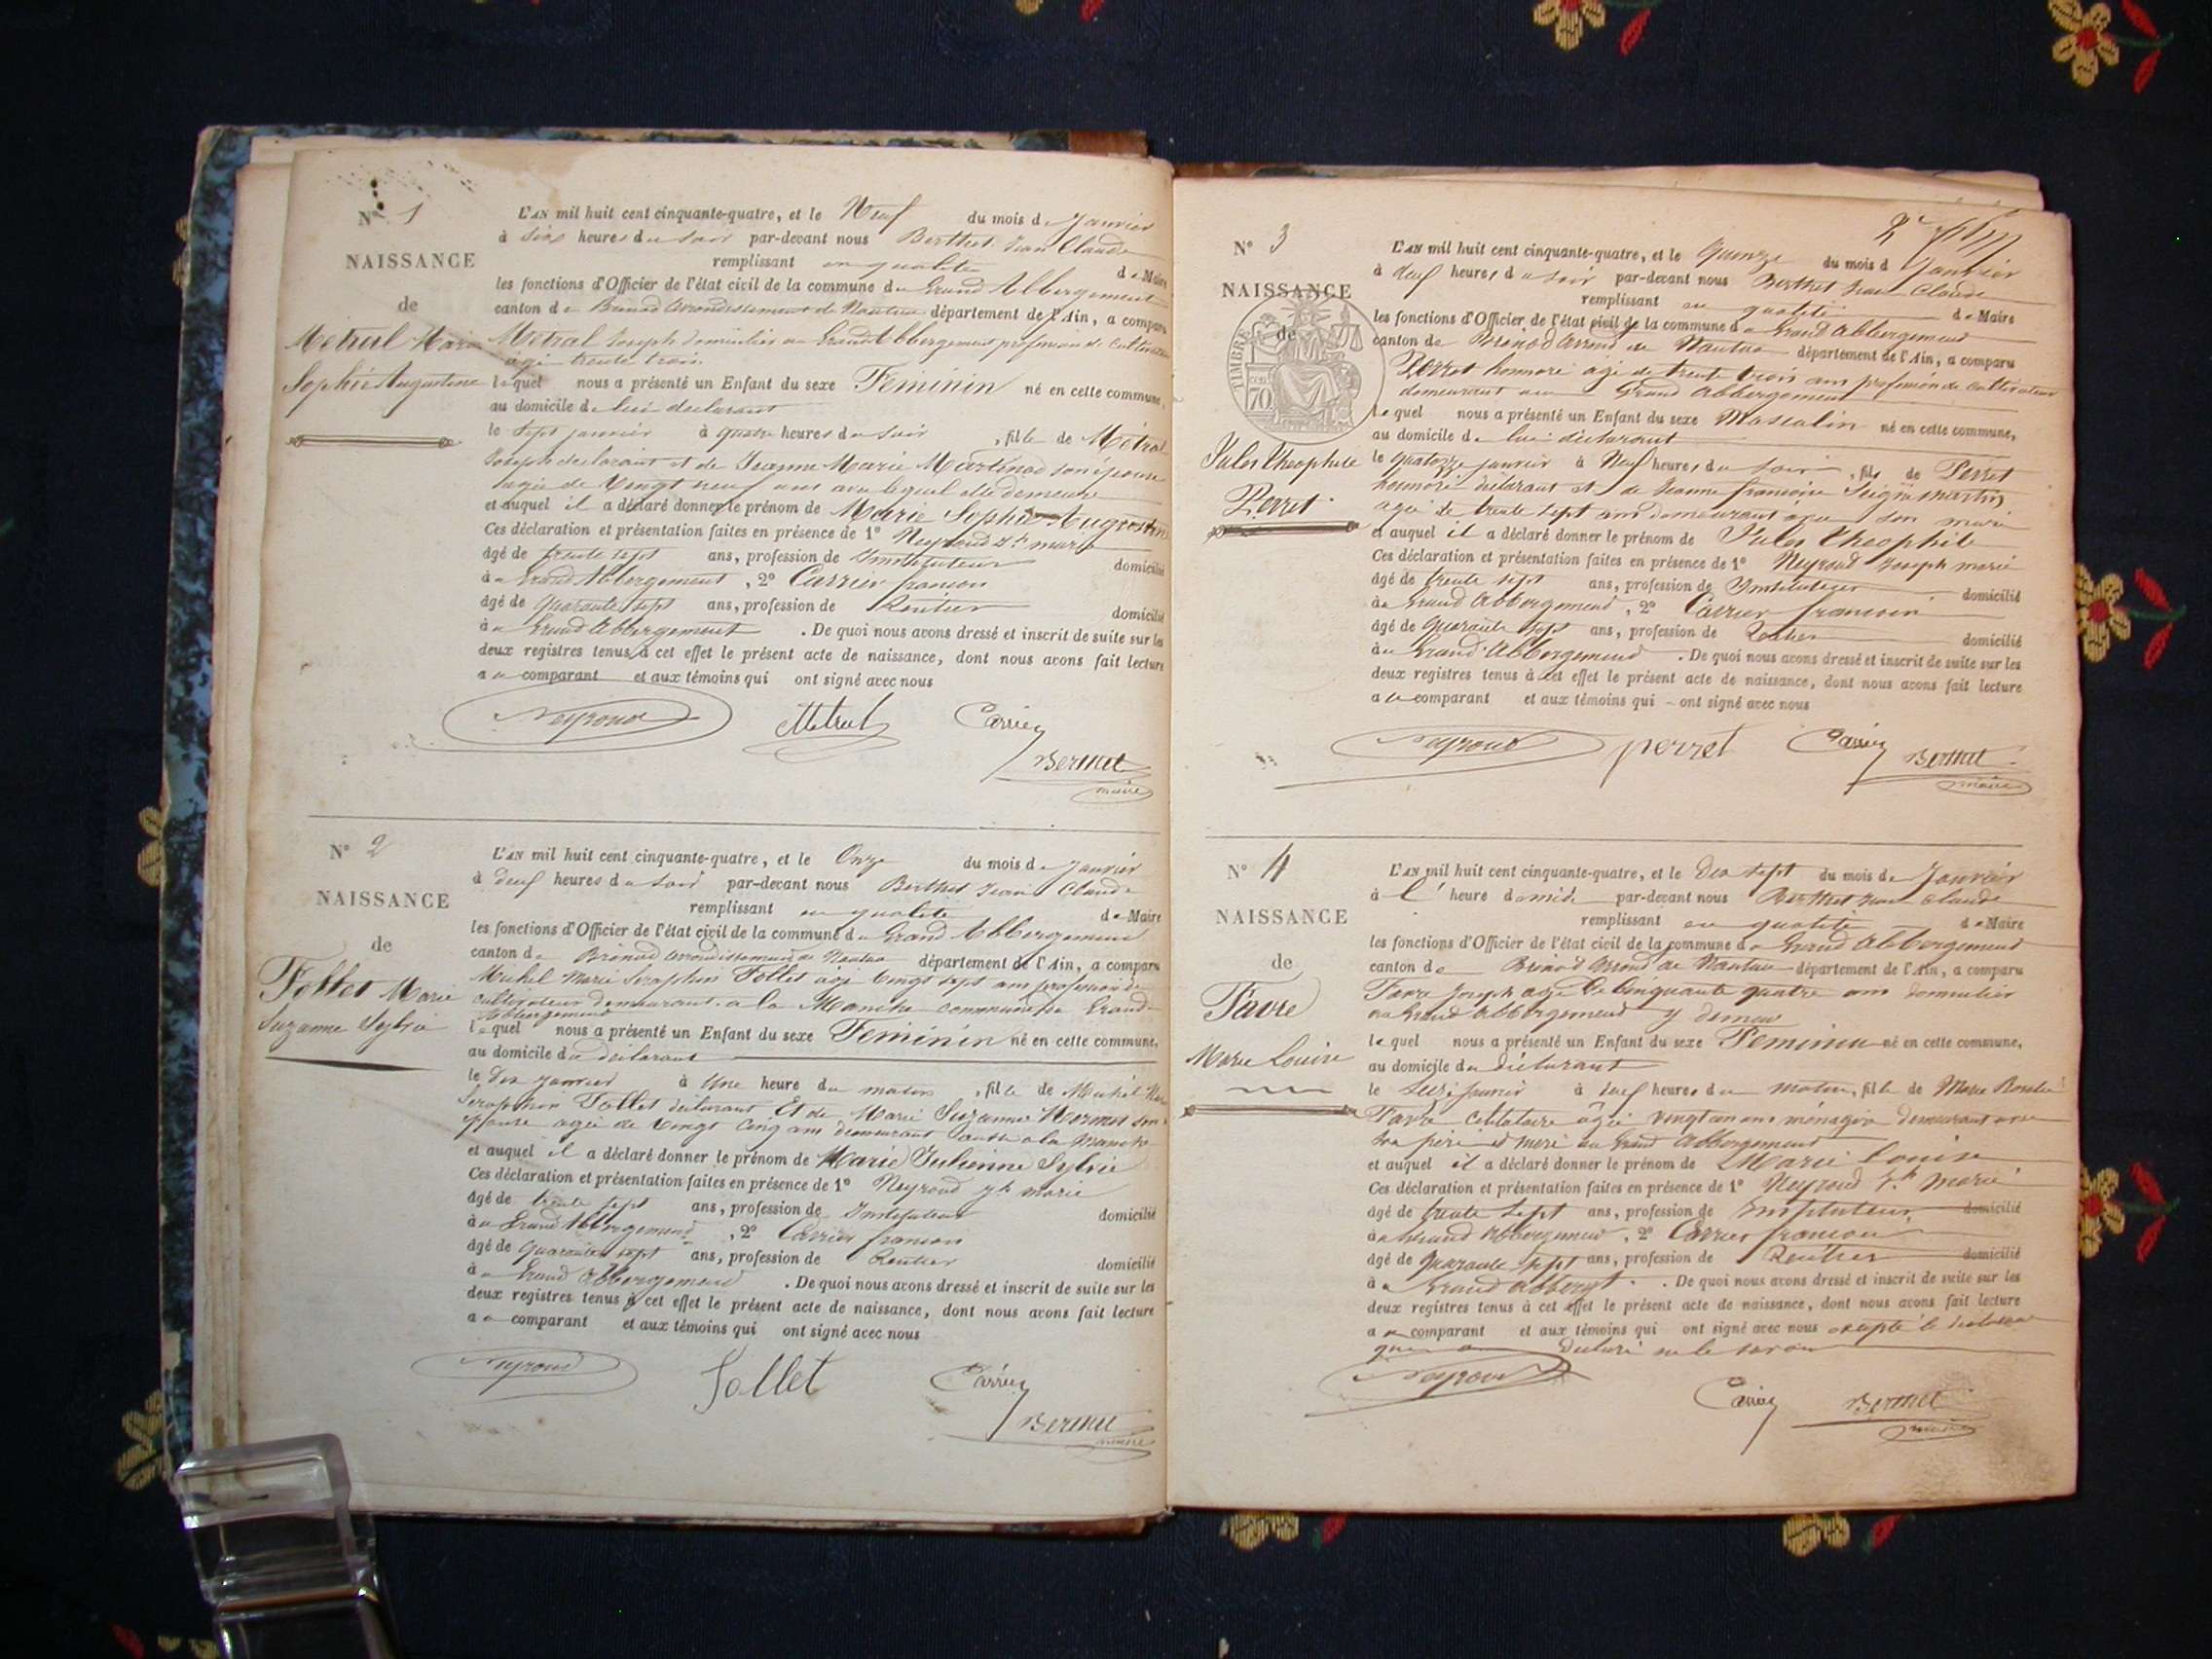 N° 1
NAISSANCE
de
Métral Marie
Sophie Augustine
L'AN mil huit cent cinquante-quatre, et le Neuf du mois de Janvier
à six heures du soir par-devant nous Berthet Jean Claude
remplissant en qualité de Maire
les fonctions d'Officier de l'état civil de la commune du Grand Abbergement
canton de Brénod arrondissement de Nantua département de l'Ain, a comparu
Métral Joseph domicilié au Grand Abbergement profession de cultivateur
agé trente trois
lequel nous a présenté un Enfant du sexe Féminin né en cette commune,
au domicile de lui déclarant
le sept janvier à quatre heures du soir, fille de Métral
Joseph déclarant et de Jeanne Marie Martinod son épouse
agée de vingt neuf ans avec lequel elle demeure
et auquel il a déclaré donner le prénom de Marie Sophie Augustine
Ces déclaration et présentation faites en présence de 1° Neyroud Jh marie
âgé de trente sept ans, profession de Instituteur domicilié
à Grand Abbergement, 2° Carrier françois
âgé de quarante sept ans, profession de Rentier domicilié
au Grand Abbergement. De quoi nous avons dressé et inscrit de suite sur les
deux registres tenus à cet effet le présent acte de naissance, dont nous avons fait lecture
au comparant et aux témoins qui ont signé avec nous
Neyroud Métral Carrier
Berthet
maire
N° 2
NAISSANCE
de
Follet Marie
Suzanne Sylvie
L'AN mil huit cent cinquante-quatre, et le Onze du mois de Janvier
à deux heures du soir par-devant nous Berthet Jean Claude
remplissant en qualité de Maire
les fonctions d'Officier de l'état civil de la commune du Grand Abbergement
canton de Brénod arrondissement de Nantua département de l'Ain, a comparu
Michel Marie Séraphin Follet agé vingt sept ans profession de
cultivateur demeurant à la Manche commune du Grand
Abbergement
lequel nous a présenté un Enfant du sexe Féminin né en cette commune,
au domicile du déclarant
le dix janvier à Une heure du matin, fille de Michel Marie
Séraphin Follet déclarant Et de Marie Suzanne son
épouse agée de vingt cinq ans demeurant aussi à la Manche
et auquel il a déclaré donner le prénom de Marie Julienne Sylvie
Ces déclaration et présentation faites en présence de 1° Neyroud jh marie
âgé de trente sept ans, profession de Instituteur domicilié
au Grand Abbergement, 2° Carrier françois
âgé de quarante sept ans, profession de Rentier domicilié
à Grand Abbergement. De quoi nous avons dressé et inscrit de suite sur les
deux registres tenus à cet effet le présent acte de naissance, dont nous avons fait lecture
au comparant et aux témoins qui ont signé avec nous
Neyroud follet Carrier
Berthet
maire
N° 3
NAISSANCE
de
TIMBRE
70
Jules Théophile
Perret
L'AN mil huit cent cinquante-quatre, et le Quinze du mois d Janvier
à neuf heures du soir par-devant nous Berthet Jean Claude
remplissant en qualité de Maire
les fonctions d'Officier de l'état civil de la commune du Grand Abbergement
canton de Brénod arrond de Nantua département de l'Ain, a comparu
Perret honnoré agé de trente trois ans profession de cultivateur
demeurant au Grand Abbergement
lequel nous a présenté un Enfant du sexe Masculin né en cette commune,
au domicile de lui déclarant
le quatorze janvier à Neuf heures du soir, fils de Perret
honnoré déclarant et de Jeanne françoise martin
agée de trente sept ans demeurant avec son mari
et auquel il a déclaré donner le prénom de Jules Théophile
Ces déclaration et présentation faites en présence de 1° Neyroud Joseph marie
âgé de trente sept ans, profession de Instituteur domicilié
à Grand Abbergement, 2° Carrier françois
âgé de quarante sept ans, profession de Rentier domicilié
au Grand Abbergement. De quoi nous avons dressé et inscrit de suite sur les
deux registres tenus à cet effet le présent acte de naissance, dont nous avons fait lecture
au comparant et aux témoins qui ont signé avec nous
Neyroud perret Carrier
Berthet
maire
N° 4
NAISSANCE
de
Favre
Marie Louise
L'AN mil huit cent cinquante-quatre, et le dix sept du mois de Janvier
à l' heure de midi par-devant nous Berthet Jean Claude
remplissant en qualité de Maire
les fonctions d'Officier de l'état civil de la commune du Grand Abbergement
canton de Brénod Arrond de Nantua département de l'Ain, a comparu
Favre Joseph agé de Cinquante quatre ans domicilié
au Grand Abbergement y demeu
lequel nous a présenté un Enfant du sexe Féminin né en cette commune,
au domicile du déclarant
le seize janvier à neuf heures du matin, fille de Marie
Favre célibataire âgée vingt un ans ménagère demeurant avec
ses père et mère au Grand Abbergement
et auquel il a déclaré donner le prénom de Marie Louise
Ces déclaration et présentation faites en présence de 1° Neyroud Jh Marie
âgé de trente sept ans, profession de Instituteur domicilié
au Grand Abbergement, 2° Carrier françois
âgé de quarante sept ans, profession de Rentier domicilié
à Grand Abbergt. De quoi nous avons dressé et inscrit de suite sur les
deux registres tenus à cet effet le présent acte de naissance, dont nous avons fait lecture
au comparant et aux témoins qui ont signé avec nous excepté le déclarant
qui a déclaré ne le savoir
Neyroud
Carrier Berthet
maire